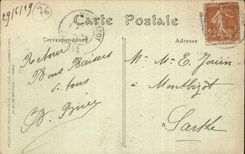 29/6/19 76
Carte Postale
Correspondance
Adresse
Retour
Bons Baisers
à tous
M. M. E. Jouin
à Montbizot
Sarthe